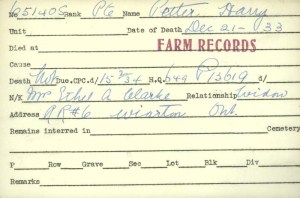 651405 Rank Pte Name Potter, Harry
Unit Date of Death Dec 21-33
Died at FARM RECORDS
Cause
Death Not Due. CPC. d/ 15/2/34 H.Q. 649 P 13619 d/
N/K Mrs Ethel A Clarke Relationship Widow
Address RR#6 Wiarton Ont.
Remains interred in Cemetery
P Row Grave Sec Lot Blk Div
Remarks